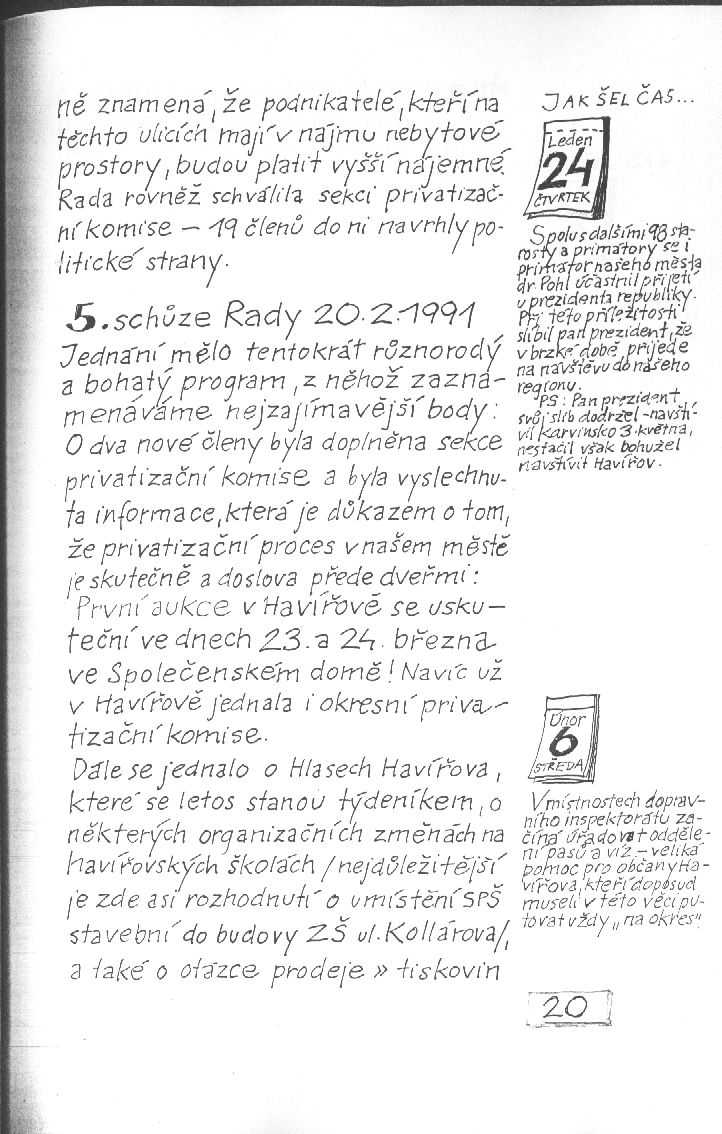 ně znamená, že podnikatelé, kteří na
těchto ulicích mají v nájmu nebytové
prostory, budou platit vyšší nájemné.
Rada rovněž schválila sekci privatizač-
ní komise – 19 členů do ní navrhly po-
litické strany.
5. schůze Rady 20.2.1991
Jednání mělo tentokrát různorodý
a bohatý program, z něhož zazna-
menáváme nejzajímavější body:
O dva nové členy byla doplněna sekce
privatizační komise a byla vyslechnu-
ta informace, která je důkazem o tom,
že privatizační proces v našem městě
je skutečně a doslova přede dveřmi:
První aukce v Havířově se usku-
teční ve dnech 23. a 24. března
ve Společenském domě! Navíc už
v Havířově jednala i okresní priva-
tizační komise.
Dále se jednalo o Hlasech Havířova,
které se letos stanou týdeníkem, o
některých organizačních změnách na
havířovských školách /nejdůležitější
je zde asi rozhodnutí o umístění SPŠ
stavební do budovy ZŠ ul. Kollárova/,
a také o otázce prodeje » tiskovin
JAK ŠEL ČAS...
Leden
24
ČTVRTEK
Spolu s dalšími 98 sta-
rosty a primátory se i
primátor našeho města
dr. Pohl účastnil přijetí
u prezidenta republiky.
Při této příležitosti
slíbil pan prezident, že
v brzké době přijede
na návštěvu do našeho
regionu.
PS: Pan prezident
svůj slib dodržel – navští-
vil Karvinsko 3. května,
nestačil však bohužel
navštívit Havířov.
Únor
6
STŘEDA
V místnostech doprav-
ního inspektorátu za-
číná úřadovat odděle-
ní pasů a víz – velká
pomoc pro občany Ha-
vířova, kteří doposud
museli v této věci pu-
tovat vždy „na okres".
20